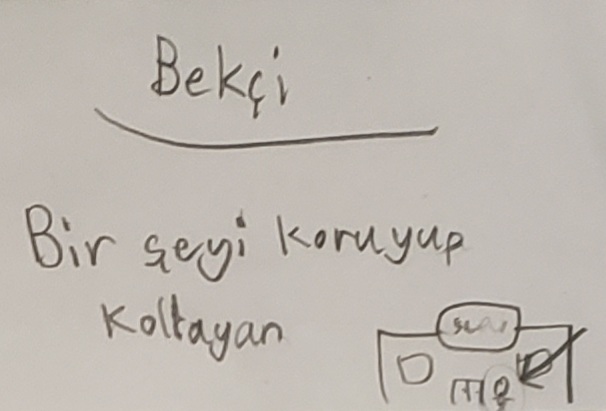 Bekçi
Bir şeyi koruyup
koltayan